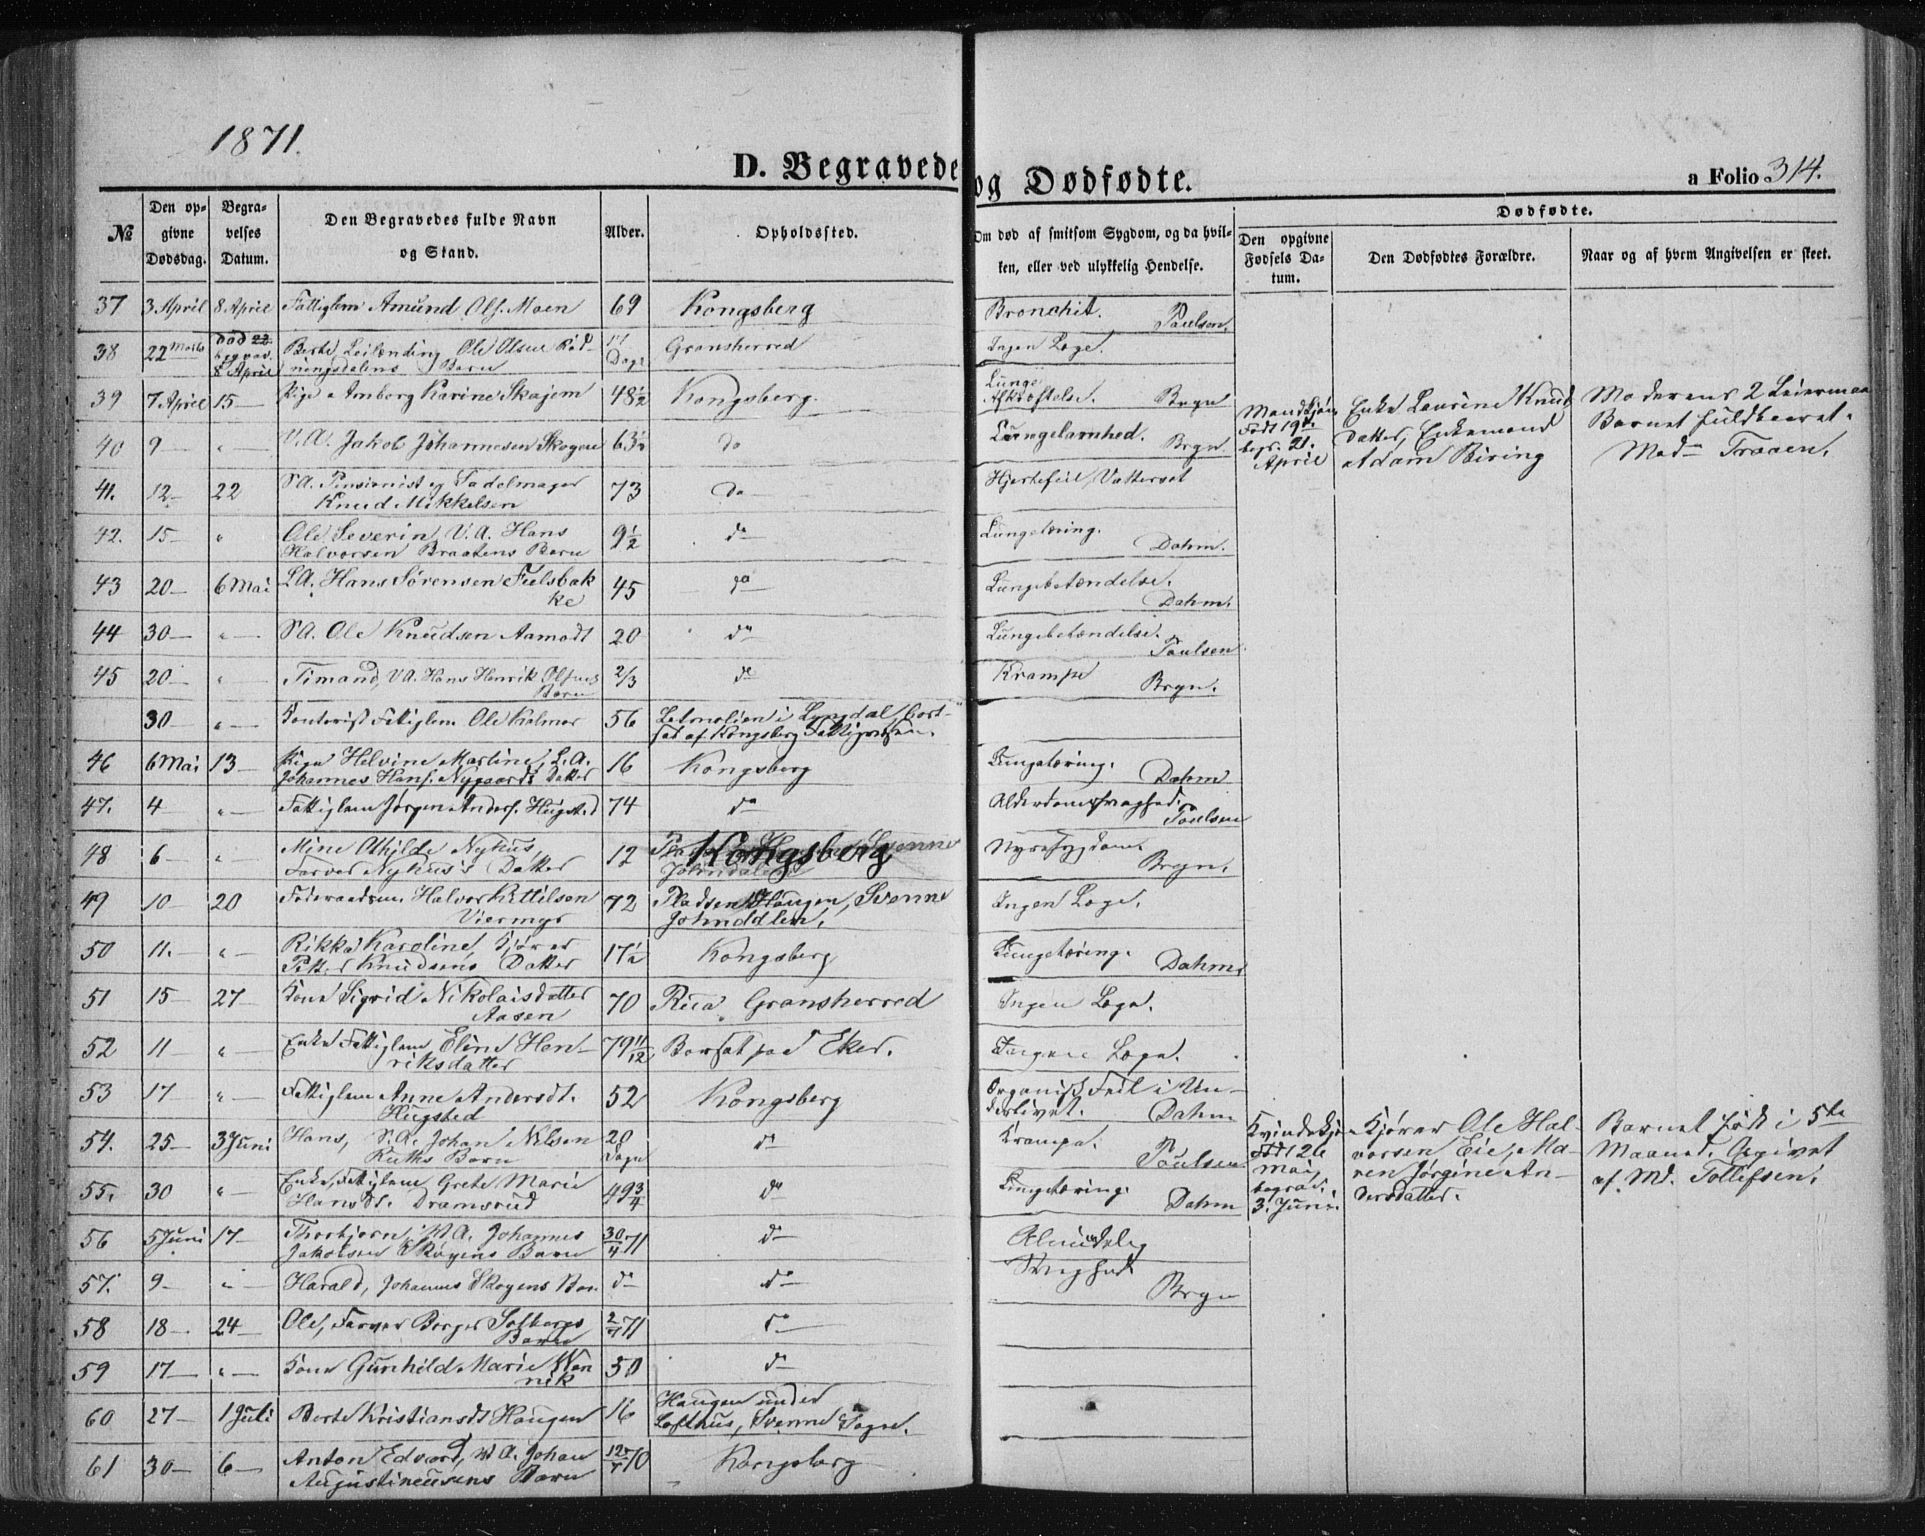 1871.
D. Begravede og Dødfødte.
a Folio 314.
№
Den opgivne Dødsdag.
Begravelses Datum.
Den Begravedes fulde Navn og Stand.
Alder.
Opholdssted.
Om død af smitsom Sygdom, og da hvilken, eller ved ulykkelig Hendelse.
Dødfødte.
Den opgivne Fødsels Datum.
Den Dødfødtes Forældre.
Naar og af hvem Angivelsen er skeet.
37 3 April 8 April Fattiglem Amund Ols. Moen 69 Kongsberg Bronchit. Paulsen.
38 22 Marts død 22 begrav. 8 April Berte, Leilending Ole Olsen Dage Gransherred Ingen Læge.
Barn
39 7 April 15 Pige Karine Skajem 48½ Kongsberg. Lunge Afkræftelse. Bryn
40 9 " V.A. Jakob Johannesen Skogen 63½ do Bryn
41. 12 22 S.A. Pensionist og Sadelmager 73 do Hjertefeil, Vattersot
Knud Mikkelsen
42. 15 " Ole Severin, V.A. Hans 9½ do Lungetæring. Dahm.
Halvorsen Braatens Barn
43 20 6 Mai L.A. Hans Sørensen Fulsbak 45 do Lungebetændelse. Dahm.
ke
44 30 " S.A. Ole Knudsen Aamodt 20 do Lungebetændelse. Paulsen
45 20 " Timand, V.A. Hans Henrik Olsens 2/3 do Krampe Bryn.
Barn
30 " Fattiglem Ole Kolmer 56 i Lyngdal, bort-
sat af Kongsberg
46 6 Mai 13 Pige Helvine Martine, L.A. 16 Kongsberg Lungetæring. Dahm
Johannes Hans. Nygaards Datter
47. 4 " Fattiglem Jørgen Anders. Hugsted 74 do Alderdomssvaghed. Paulsen
48 6 " Mine Athilde Nyhus, 12 Kongsberg Nyresygdom. Bryn.
Farver Nyhus's Datter
49 10 20 Føderaadsm. Halvor Kittilsen 72 Pladsen Haugen, Svenne Ingen Læge.
Viermyr Johnddlen.
50 11. " Rikka Karoline Kjører 17½ Kongsberg Lungetæring. Dahm
Petter Knudsens Datter
51 15 27 Kone Sigrid Nikolaisdatter 70 Rua, Gransherred Ingen Læge.
Aasen
52 11 " Enke Fattiglem Eline Hen- 79 11/12 Bortsat paa Eker. Ingen Læge.
riksdatter
53 17 " Fattiglem Anne Andersdt. 52 Kongsberg Organisk Feil i Un-
Hugsted derlivet. Dahm
54. 25 3 Juni Hans, S.A. Johan Nilsen 20 Dage do Krampe. Paulsen
Ruths Barn
55. 30 " Enke, Fattiglem Grete Marie 49¾ do Lungetæring. Dahm
Hansdt. Dramsrud
56 5 Juni 17 Thorbjørn, V.A. Johannes 30/4 71 do Almindelig
Jakobsen Skogens Barn
57. 9 " Harald, Johannes Skogens Barn do do Svaghed. Bryn
58 18 24 Ole, Farver Borger Solbergs 2/4 71 do
Barn
59 17 " Kone Gunhild Marie Wen 50 do
nik
60 27 1 Juli Berte Kristiansdt Haugen 16 Haugen under
Lofthus, Svenne Sogn.
61 30 6 Anton Edvard, V.A. Johan 12/7 70 Kongsberg
Augustinussens Barn
Mandkjøn Født 19de begr. 21. April
Enke Laurine Knuds Datter, Enkemand Adam Biring
Moderens 2 Leiermaal Barnet fuldbaaret. Mad Traaen.
Kvindekjøn Født 26 Mai, begrav. 3. Juni.
Kjører Ole Hal- vorsen Eie, Ma- ren Jørgine An- dersdatter.
Barnet født i 5te Maaned. Opgivet af Md. Tollefsen.